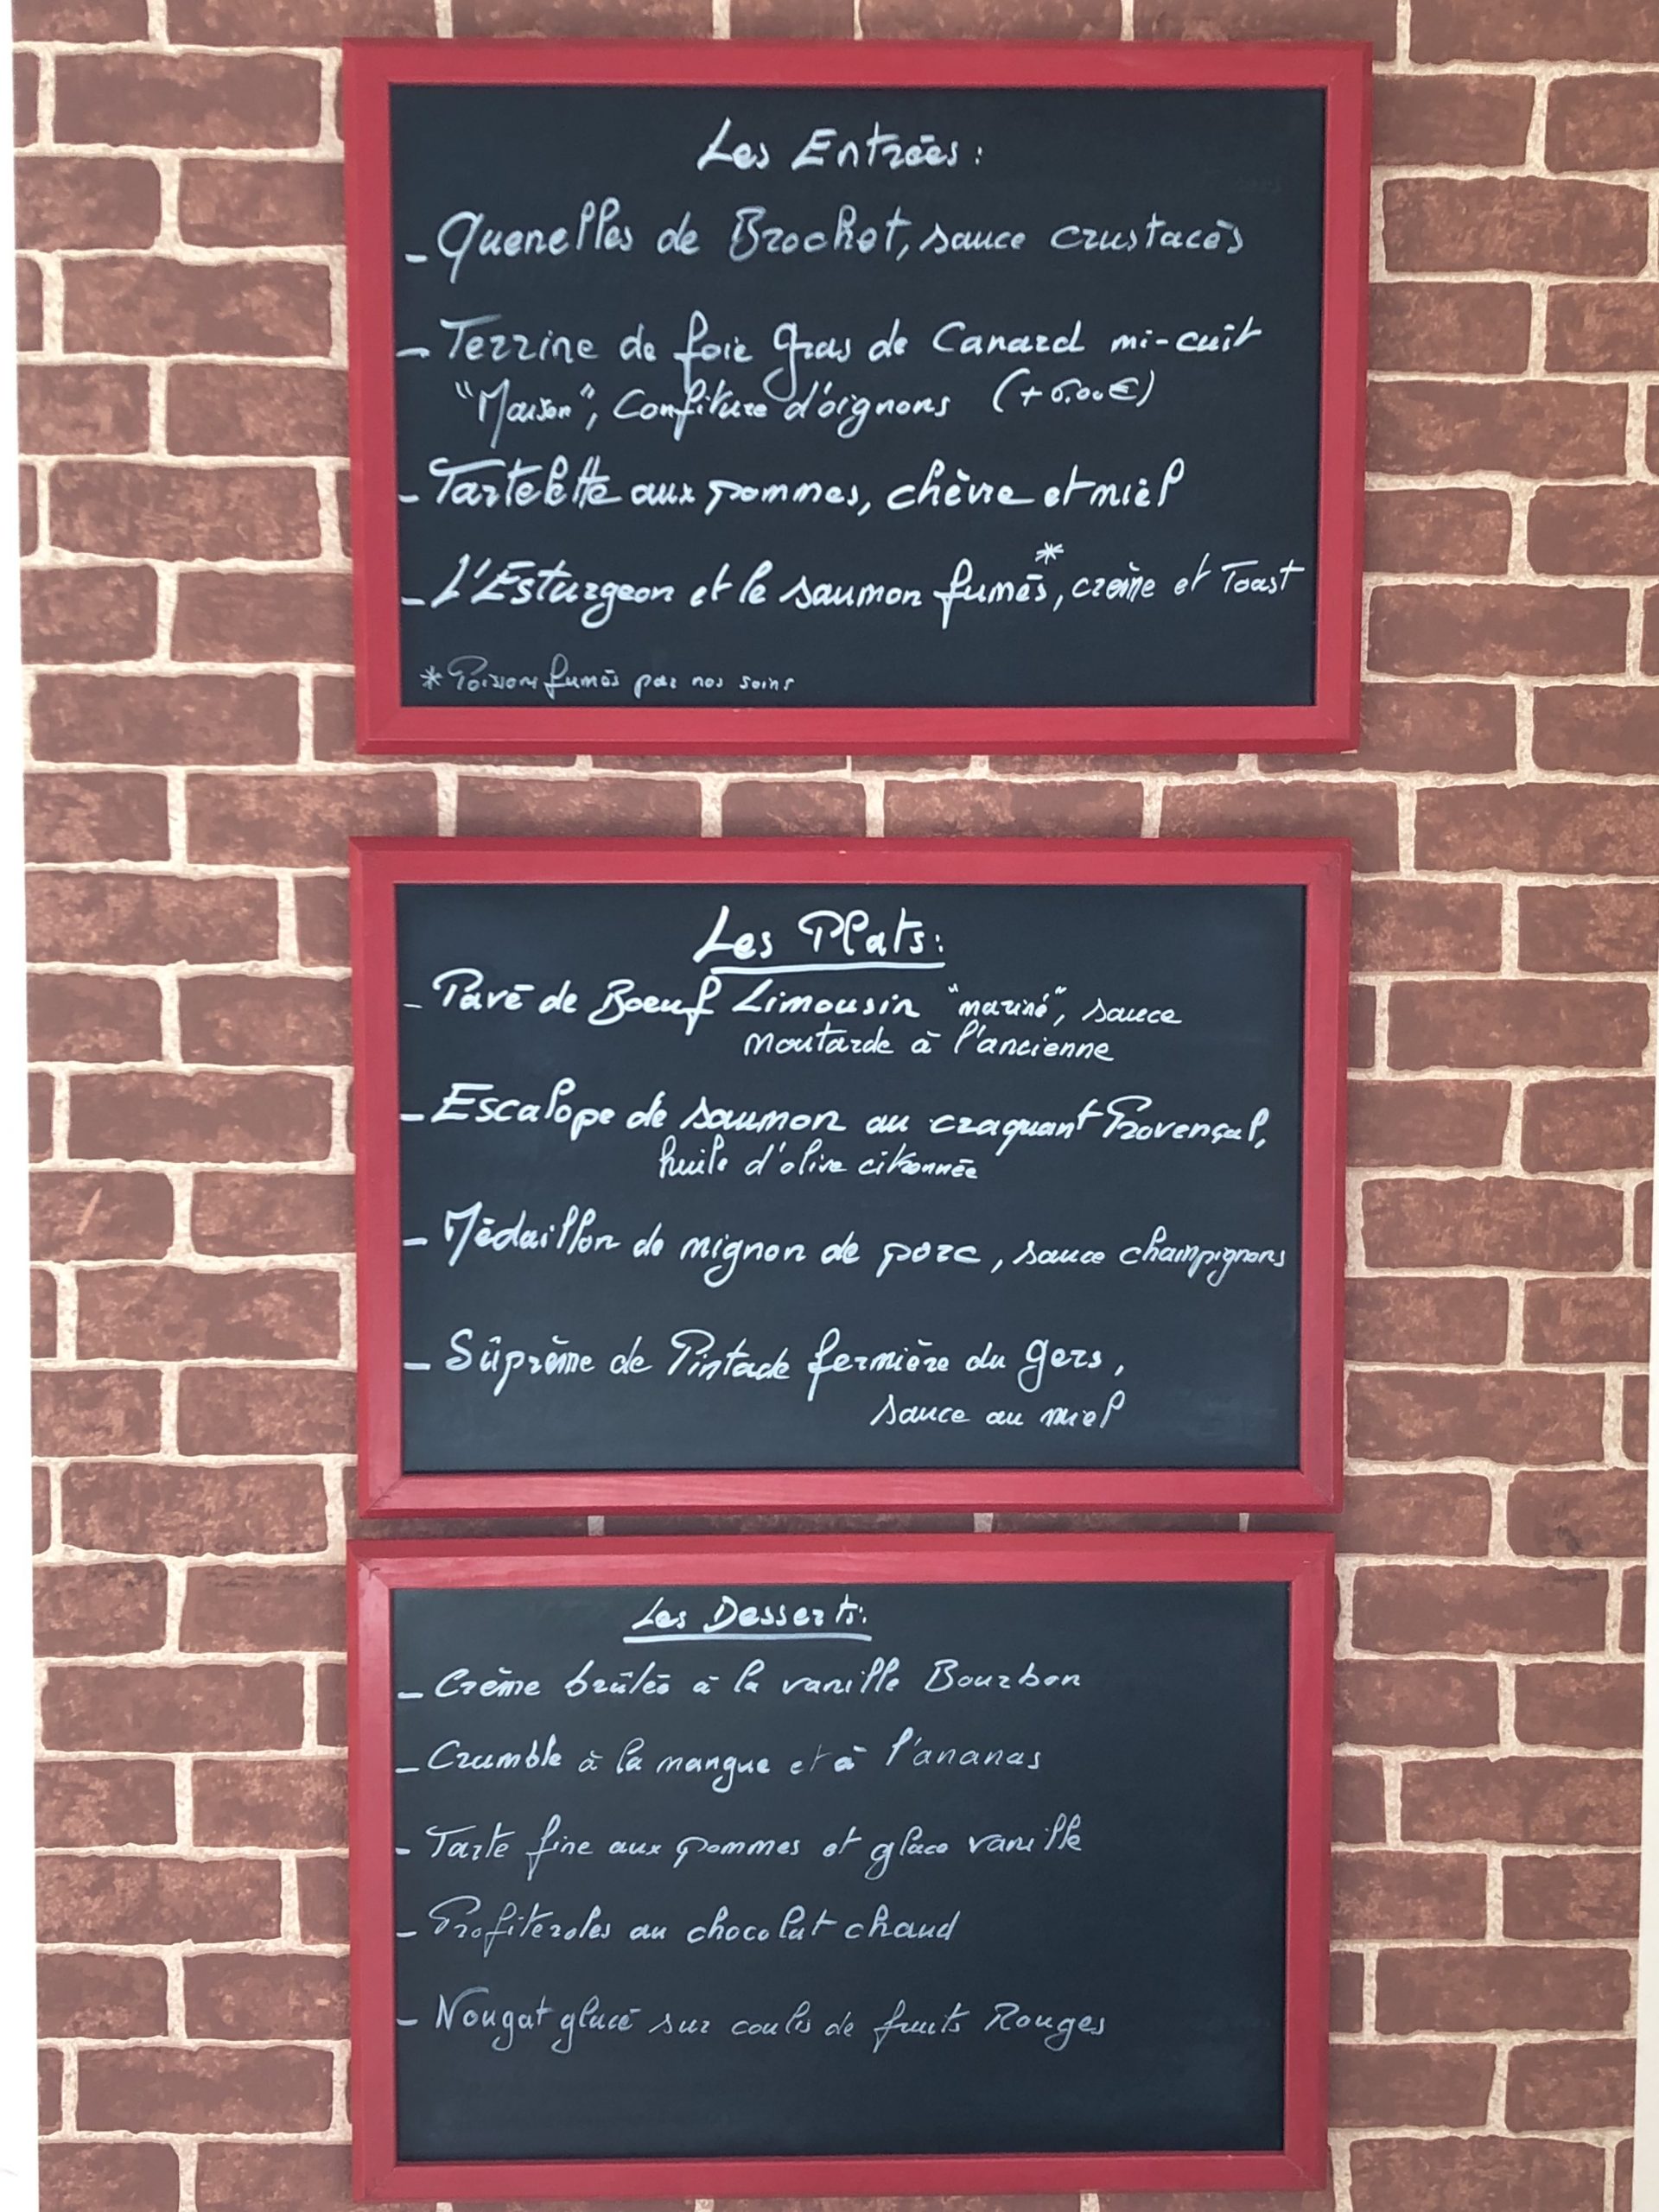 Les Entrées :
- Quenelles de Brochet, sauce crustacés
- Terrine de foie gras de Canard mi-cuit
"Maison", Confiture d'oignons (+6.00€)
- Tartelette aux pommes, chèvre et miel
- L'Esturgeon et le saumon fumés*, crème et Toast
* Poissons fumés par nos soins
Les Plats :
- Pavé de Boeuf Limousin "mariné", sauce
moutarde à l'ancienne
- Escalope de saumon au craquant Provençal,
huile d'olive citronnée
- Médaillon de mignon de porc, sauce champignons
- Sûprême de Pintade fermière du gers,
sauce au miel
Les Desserts :
- Crème brûlée à la vanille Bourbon
- Crumble à la mangue et à l'ananas
- Tarte fine aux pommes et glace vanille
- Profiteroles au chocolat chaud
- Nougat glacé sur coulis de fruits Rouges